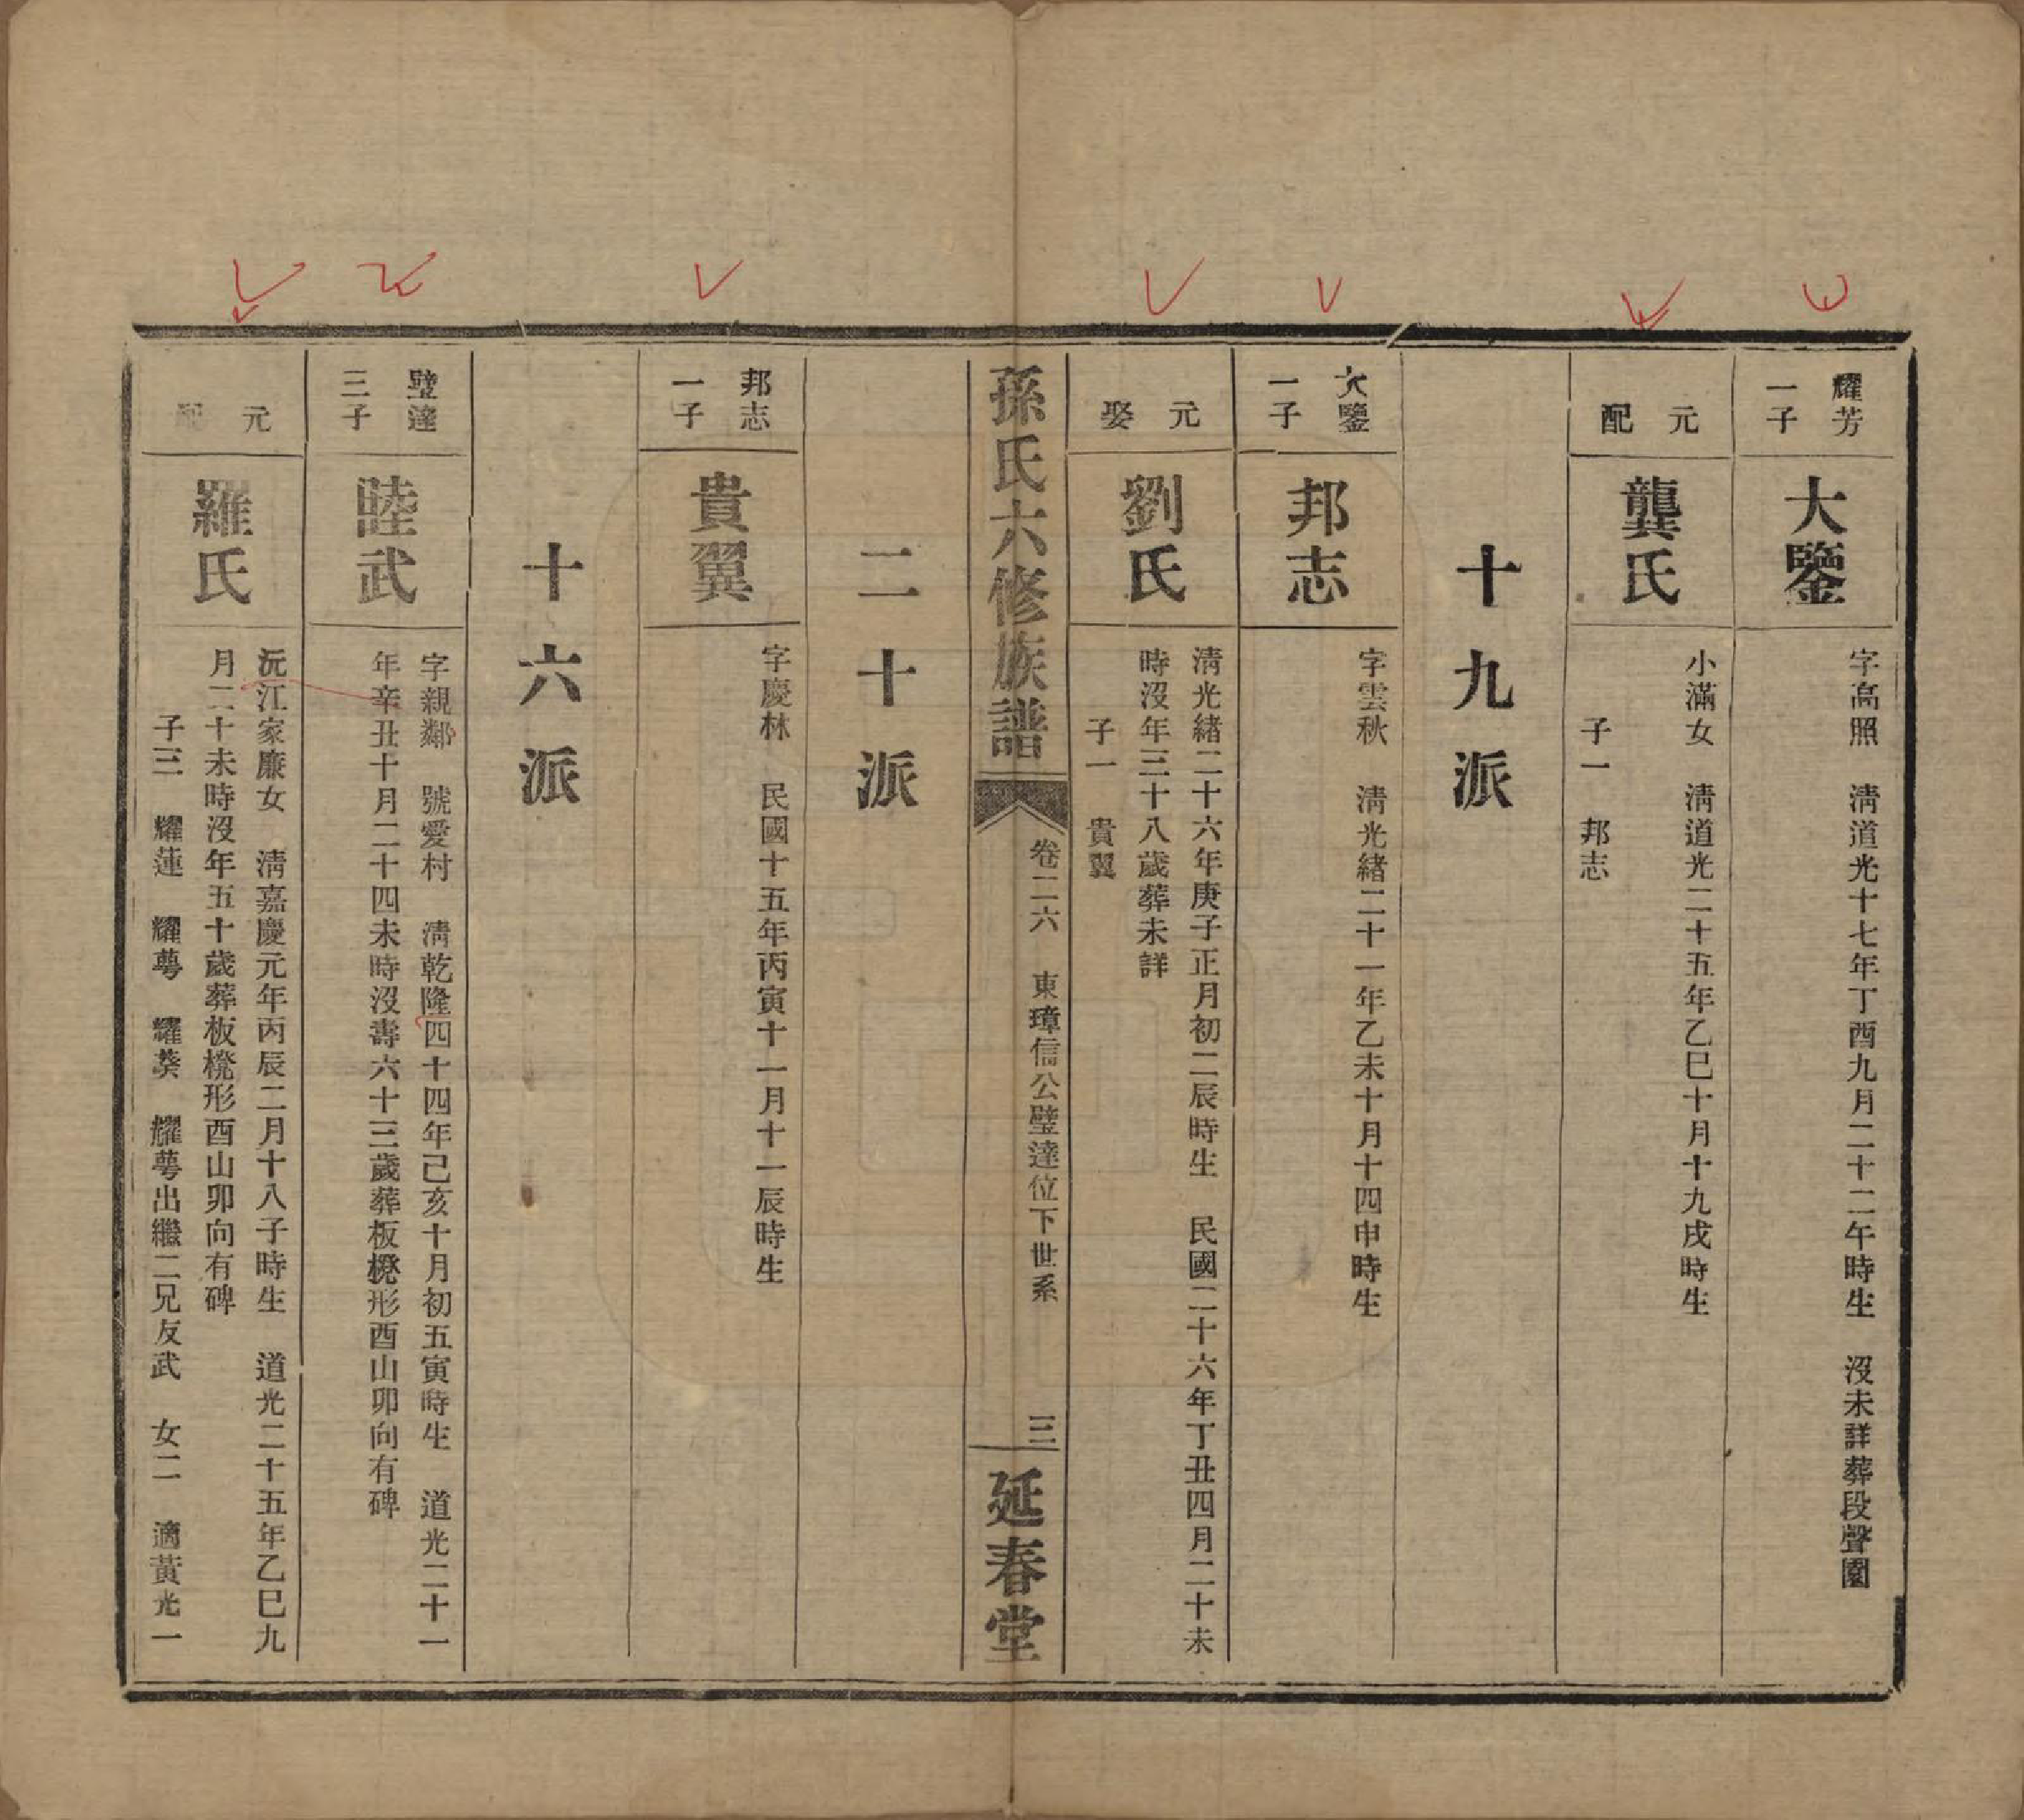 耀芳
一子
大鑒
字高照　淸道光十七年丁酉九月二十二午時生　沒未詳葬段聲園
元配
龔氏
小滿女　淸道光二十五年乙巳十月十九戌時生
子一　邦志
十九派
大鑒
一子
邦志
字雲秋　淸光緒二十一年乙未十月十四申時生
元娶
劉氏
淸光緒二十六年庚子正月初二辰時生　民國二十六年丁丑四月二十未
時沒年三十八歲葬未詳
子一　貴翼
孫氏六修族譜
卷二六　東璋信公璧達位下世系
三
延春堂
二十派
邦志
一子
貴翼
字慶林　民國十五年丙寅十一月十一辰時生
十六派
璧達
三子
睦武
字親鄰　號愛村　淸乾隆四十四年己亥十月初五寅時生　道光二十一
年辛丑十月二十四未時沒壽六十三歲葬板櫈形酉山卯向有碑
元配
羅氏
沅江家廉女　淸嘉慶元年丙辰二月十八子時生　道光二十五年乙巳九
月二十未時沒年五十歲葬板櫈形酉山卯向有碑
子三　耀蓮　耀蕚　耀葵　耀蕚出繼二兄友武　女二　適黃光一